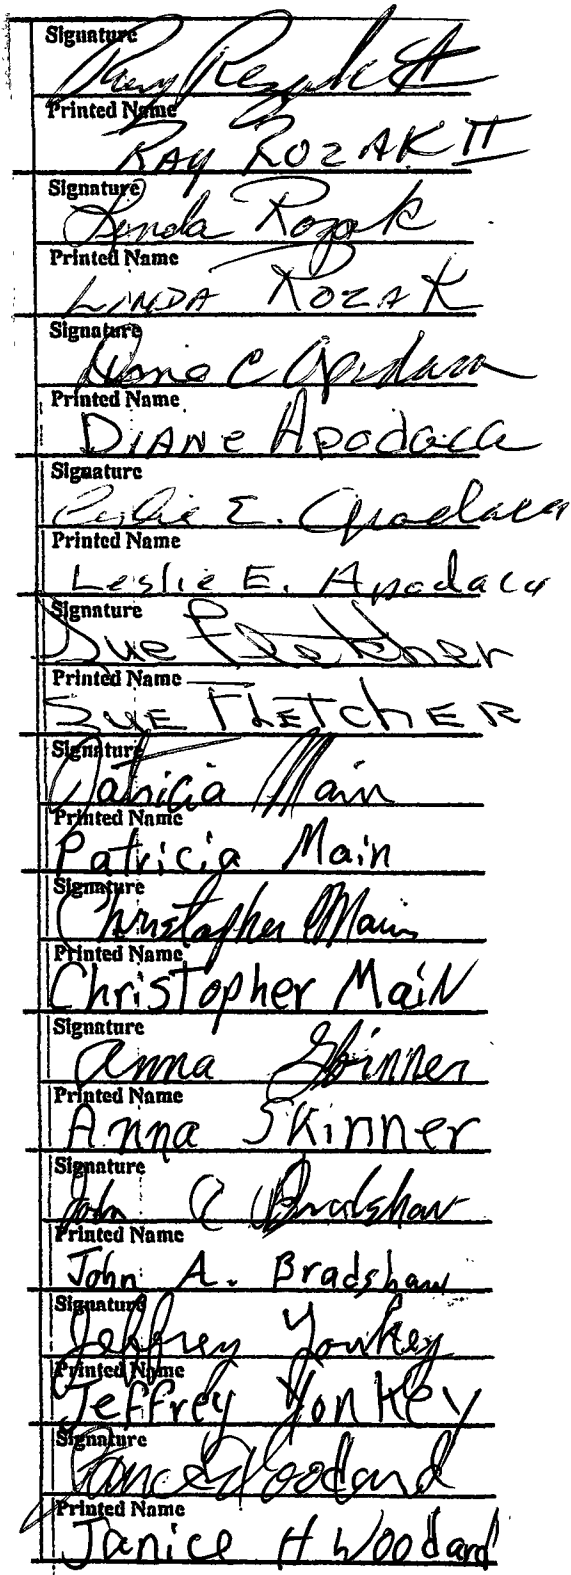 Signature
Ray Rozak II
Printed Name
RAY ROZAK II
Signature
Linda Rozak
Printed Name
LINDA ROZAK
Signature
Diane C Apodaca
Printed Name
DIANE APODACA
Signature
Leslie E. Apodaca
Printed Name
Leslie E. Apodaca
Signature
Sue Fletcher
Printed Name
SUE FLETCHER
Signature
Patricia Main
Printed Name
Patricia Main
Signature
Christopher Main
Printed Name
Christopher Main
Signature
Anna Skinner
Printed Name
Anna Skinner
Signature
John A Bradshaw
Printed Name
John A. Bradshaw
Signature
Jeffrey Yonkey
Printed Name
Jeffrey Yonkey
Signature
Janice H Woodard
Printed Name
Janice H Woodard